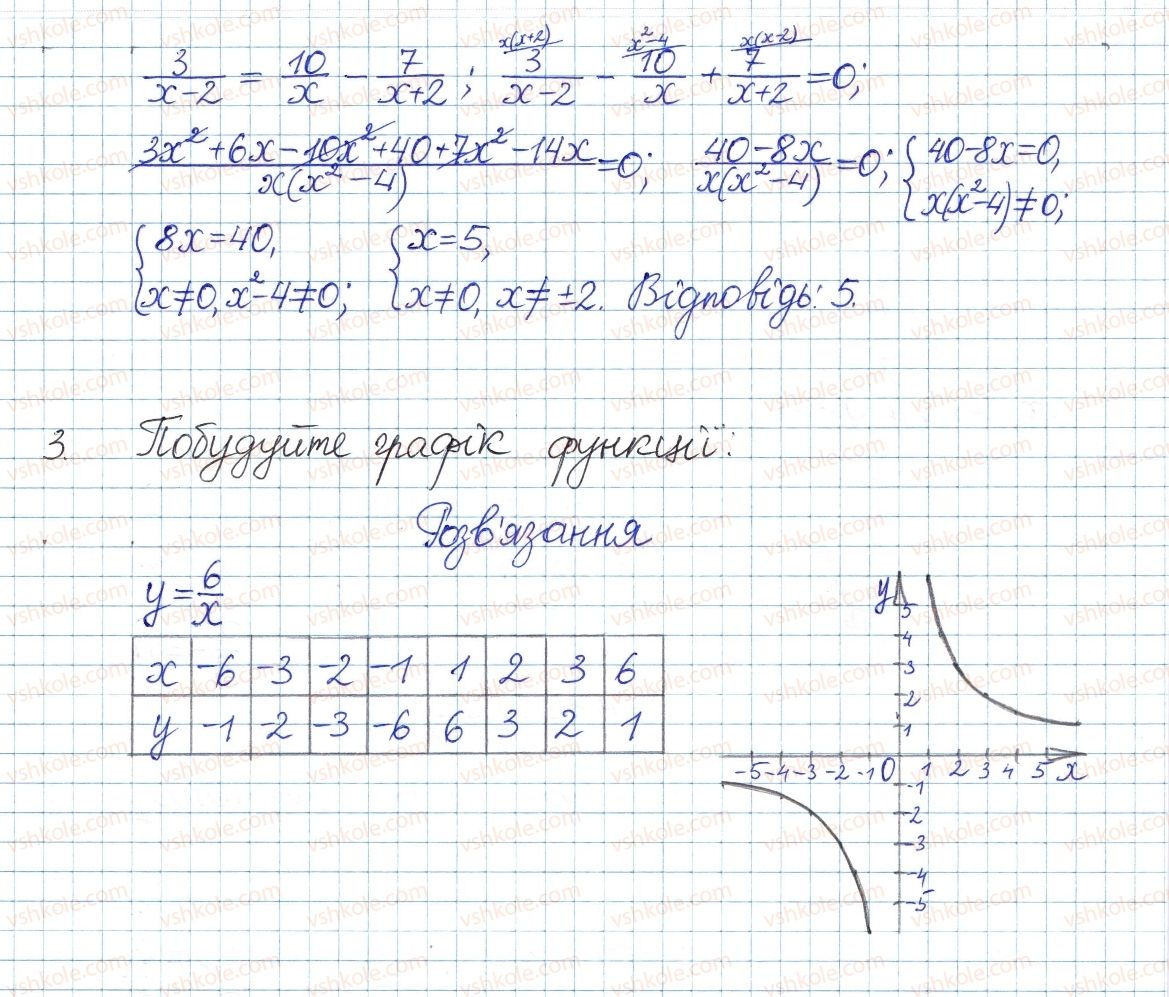 3/(x-2) = 10/x - 7/(x+2); x(x+2) 3/(x-2) - x²-4 10/x + x(x-2) 7/(x+2) = 0;
(3x²+6x-10x²+40+7x²-14x)/(x(x²-4)) = 0; (40-8x)/(x(x²-4)) = 0; { 40-8x=0, x(x²-4)≠0;
{ 8x=40, x≠0, x²-4≠0; { x=5, x≠0, x≠±2. Відповідь: 5.
3. Побудуйте графік функції:
Розв'язання
y = 6/x
x -6 -3 -2 -1 1 2 3 6
y -1 -2 -3 -6 6 3 2 1
y
5
4
3
2
1
-5 -4 -3 -2 -1 0 1 2 3 4 5 x
-1
-2
-3
-4
-5
vshkole.com